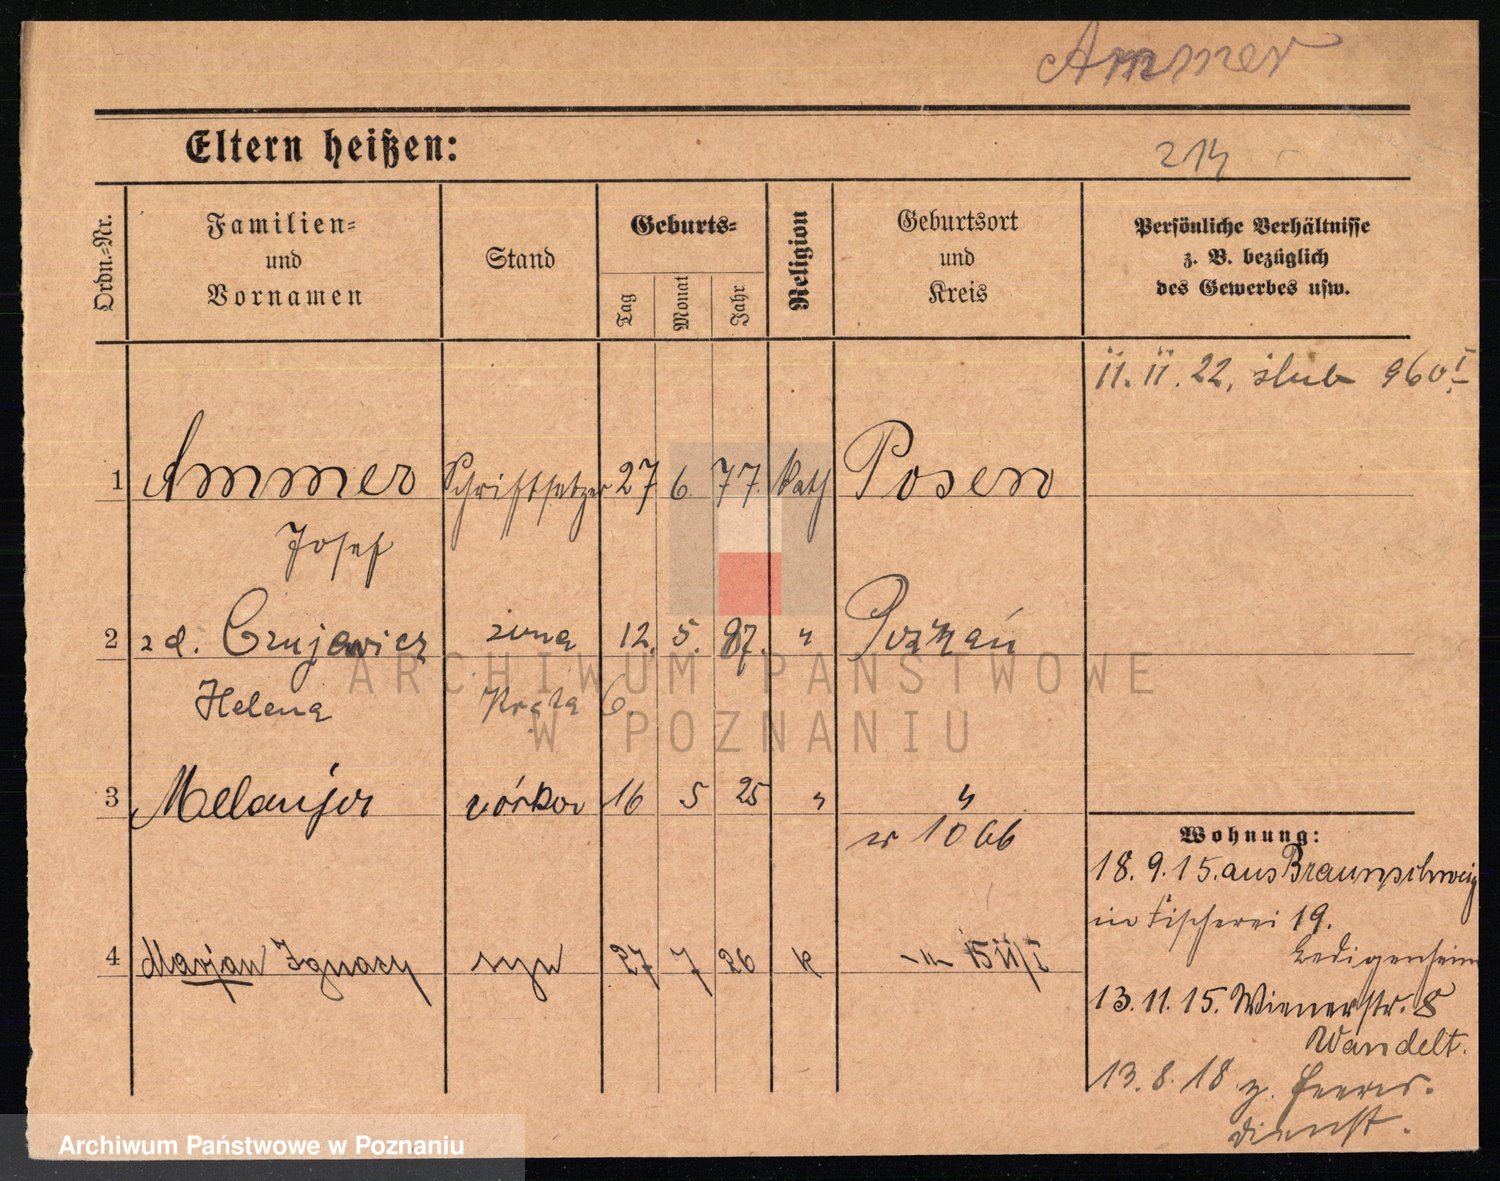 Ammer
Eltern heißen:
214
Ordn.-Nr.
Familien-
und
Vornamen
Stand
Geburts-
Tag
Monat
Jahr
Religion
Geburtsort
und
Kreis
Persönliche Verhältnisse
z. B. bezüglich
des Gewerbes usw.
11. 11. 22. ślub 960 I
1 Ammer Schriftsetzer 27 6. 77. kath Posen
Josef
2 zd. Czujewicz żona 12. 5. 87. " Poznań
Helena 6.
3 Melanja córka 16 5 25 " "
w 1066
Wohnung:
18. 9. 15. aus Braunschweig
in Fischerei 19.
Ledigenheim
4 Marjan Ignacy syn 27 7 26 k -"- 1511/I
13. 11. 15. Wienerstr. 8
Wandelt.
13. 8. 18 z. Heeres-
dienst.
ARCHIWUM PAŃSTWOWE
W POZNANIU
Archiwum Państwowe w Poznaniu